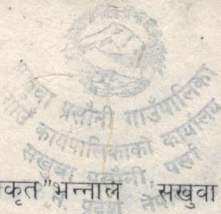 सखुवा प्रसौनी गाउँपालिका
गाउँ कार्यपालिकाको कार्यालय
सखुवा प्रसौनी, पर्सा
कृत"भन्नाले सखुवा